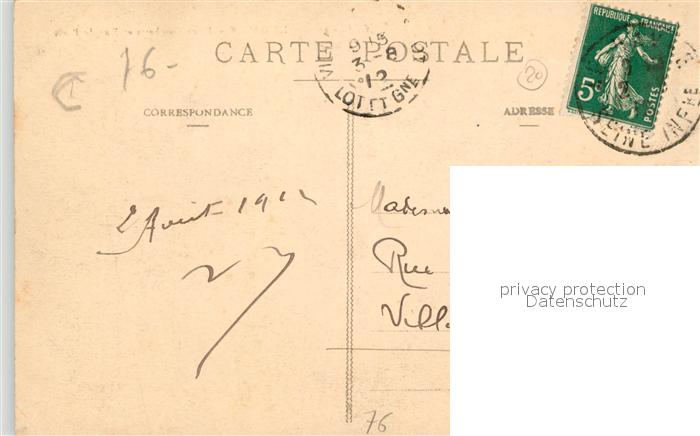 CARTE POSTALE
76-
VIL
9-15
3-8
12
LOT ET GNE
20
REPUBLIQUE FRANÇAISE
5c
POSTES
SEINE INFRE
CORRESPONDANCE
ADRESSE
2 Août 1912
Rue
Vill
privacy protection
Datenschutz
76